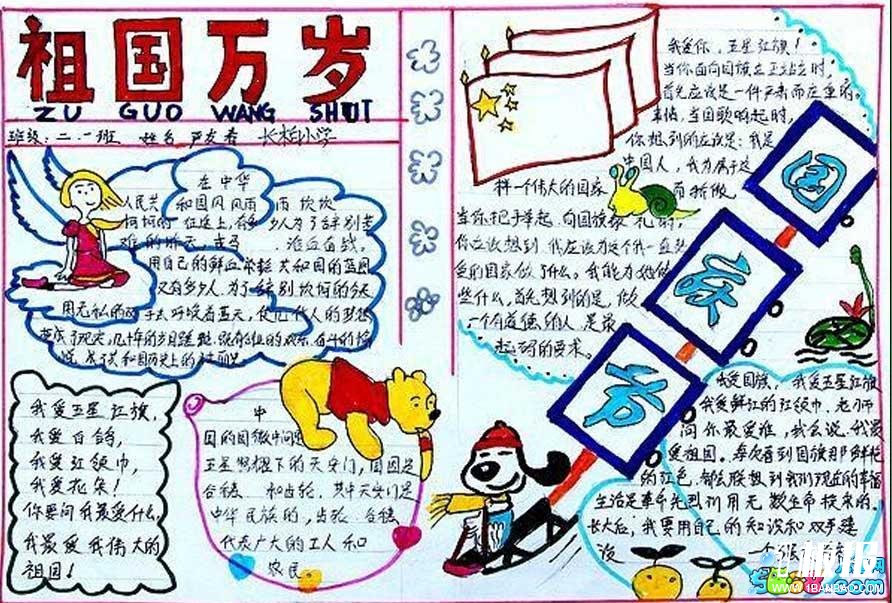 祖国万岁
ZU GUO WANG SHUI
班级:二.一班 姓名 严发春 长柏小学
在中华
人民共 和国风风雨雨 坎坎
坷坷的 征途上,有多少人为了告别苦
难的昨天,
用自己的鲜血 共和国的蓝图
又有多少人,为了告别坎坷的今天
用无私的双手去
和国历史上的
我爱五星红旗,
我爱白鸽,
我爱红领巾,
我爱花朵!
你要问我最爱什么,
我最爱我伟大的
祖国!
中
国的国徽中间是
五星照耀下的天安门,周围是
谷穗 和齿轮,其中天安门是
中华民族的,齿轮、谷穗
代表广大的工人和
农民
我爱你,五星红旗!
当你面向国旗立正站立时,
首先应该是一件严肃而庄重的
事情,当国歌响起时,
你想到的应该是:我是
中国人,我为属于这
样一个伟大的国家 而骄傲
当你把手举起 向国旗敬 礼时,
你应该想到,我应该为这个我一直热
爱的国家做了什么。我能为她做
些什么,首先想到的是,做
一个有道德的人 是最
起码的要求。
国
庆
节
我爱国旗,我爱五星红旗
我爱鲜红的红领巾,老师
问你最爱谁,我会说:我最
爱祖国。每次看到国旗那鲜艳
的红色,都会联想到我们现在的幸福
生活是革命先烈们用无数生命换来的。
长大后,我要用自己的知识和双手建
设
板报
WWW.1BANBAO.COM